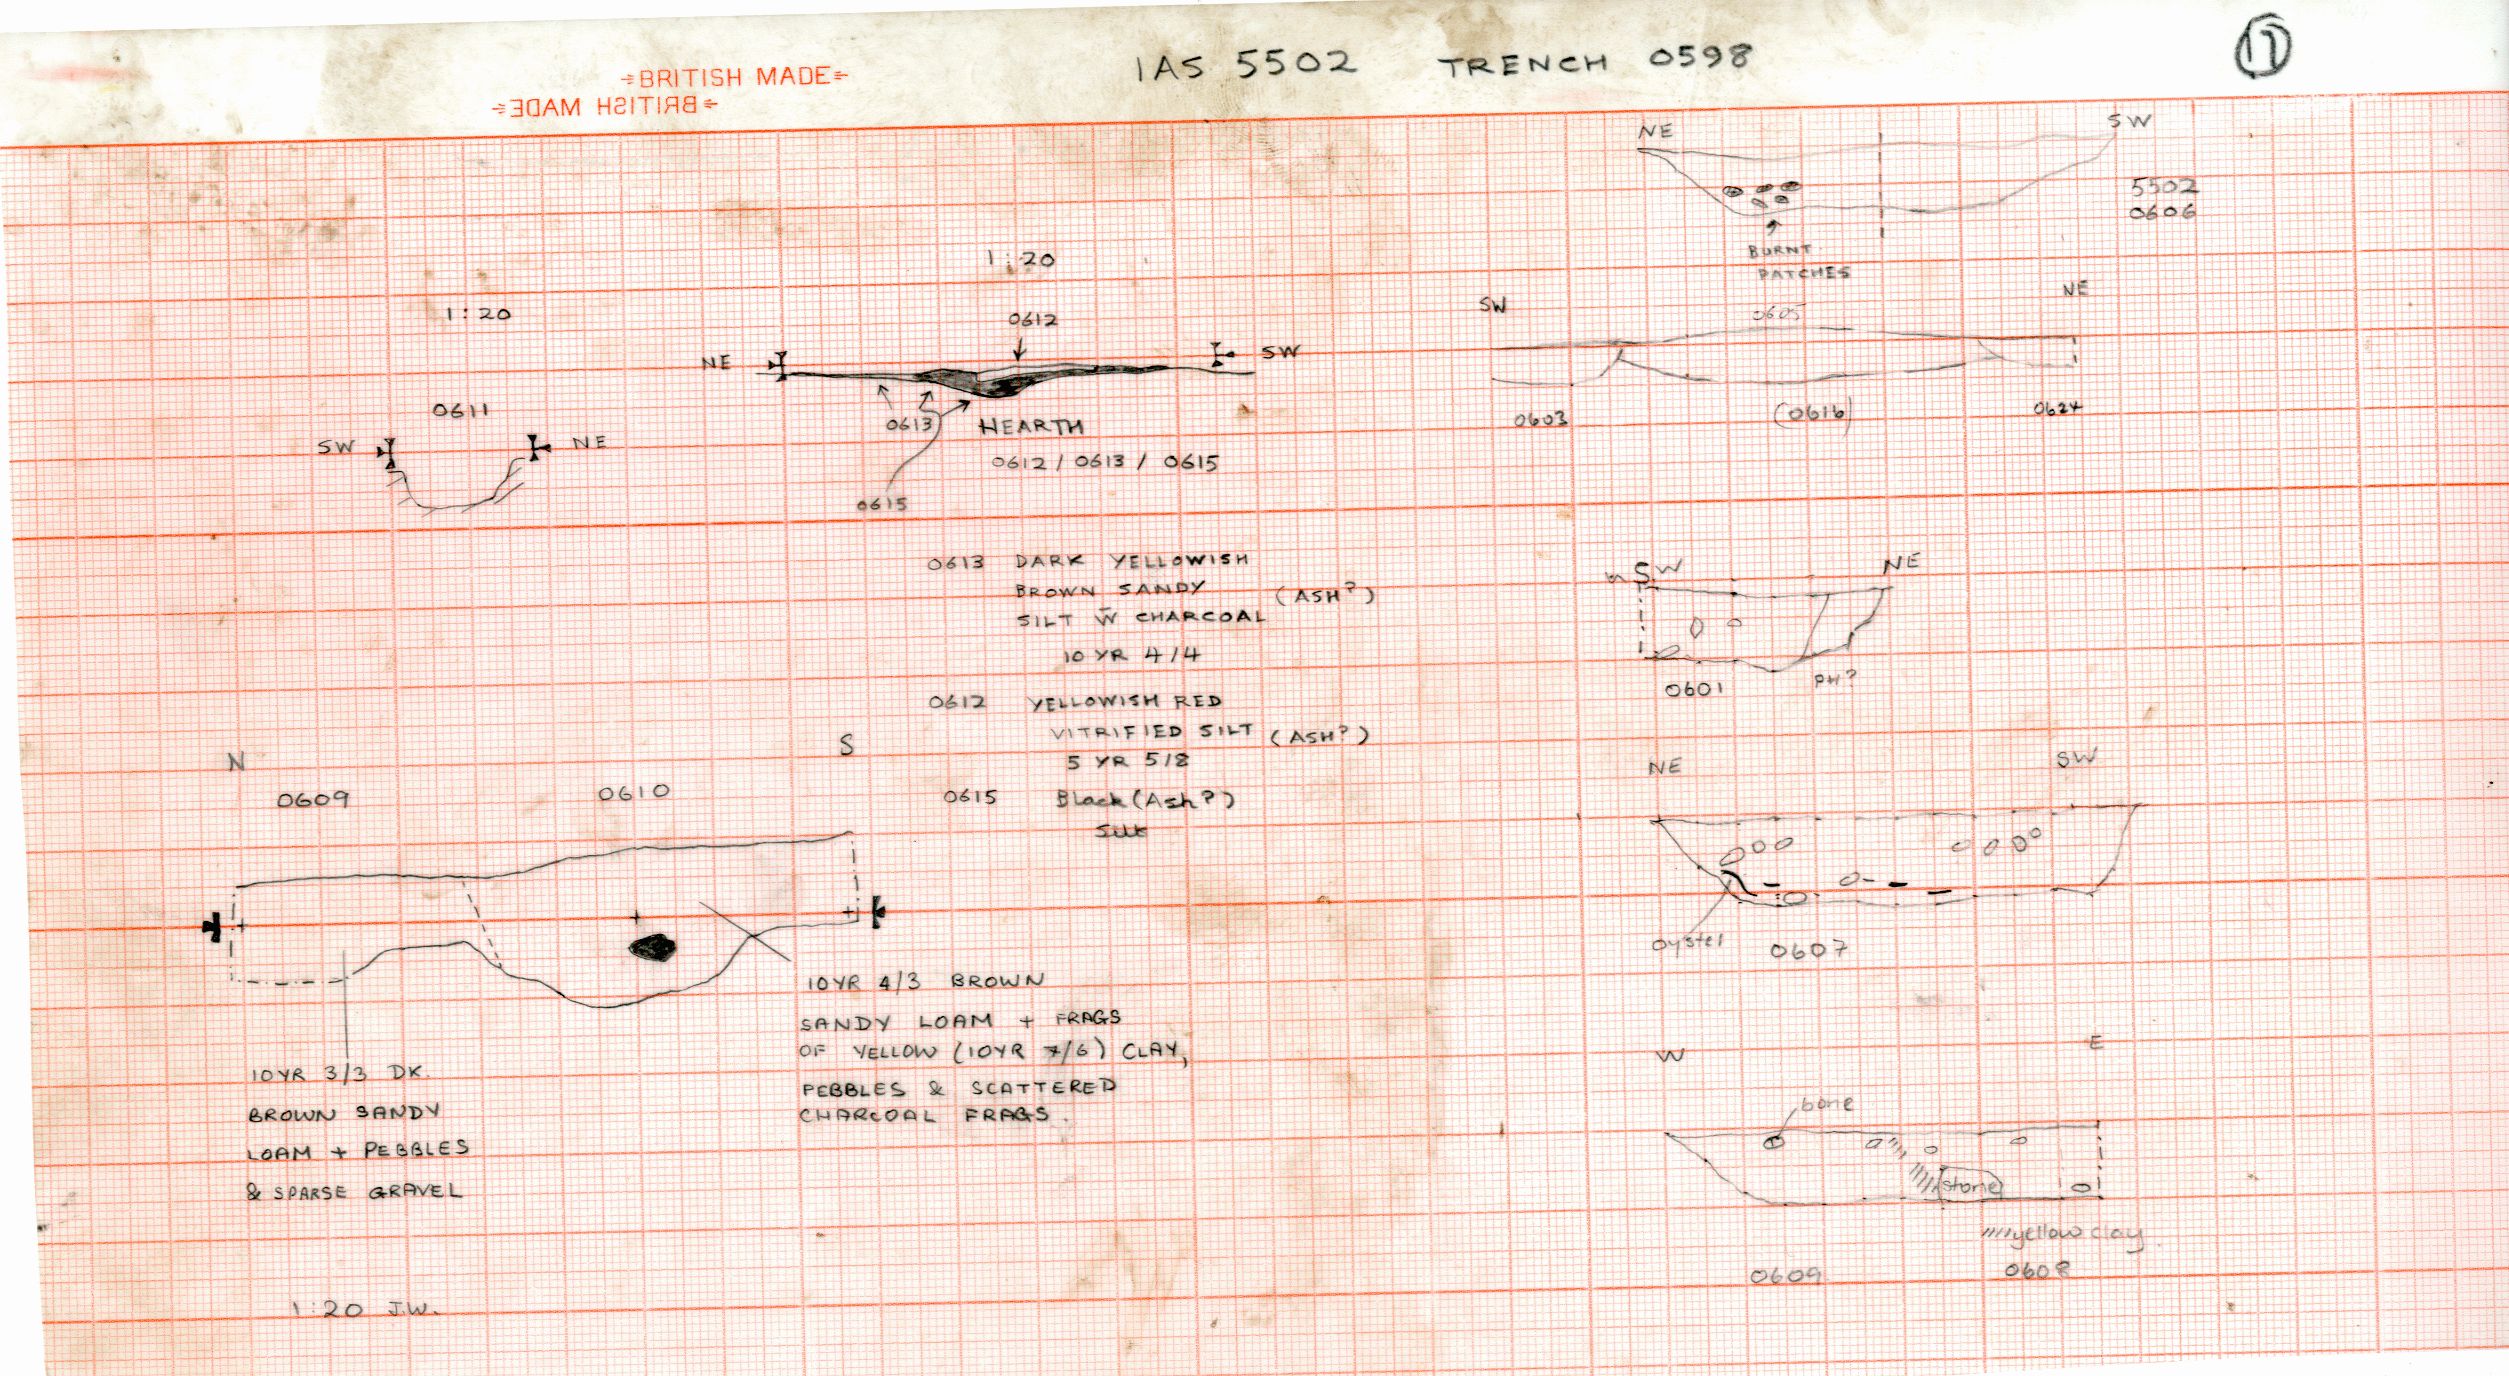 BRITISH MADE
BRITISH MADE
IAS 5502 TRENCH 0598
11
NE SW
5502
0606
BURNT
PATCHES
1:20
0612
NE SW
0613
HEARTH
0612 / 0613 / 0615
0615
1:20
0611
SW NE
SW NE
0605
0603 (0616) 0624
0613 DARK YELLOWISH
BROWN SANDY (ASH?)
SILT W̄ CHARCOAL
10 YR 4/4
0612 YELLOWISH RED
VITRIFIED SILT (ASH?)
5 YR 5/8
0615 Black (Ash?)
Silt
SW NE
0601 PH?
N S
0609 0610
10YR 4/3 BROWN
SANDY LOAM + FRAGS
OF YELLOW (10YR 7/6) CLAY,
PEBBLES & SCATTERED
CHARCOAL FRAGS.
10YR 3/3 DK.
BROWN SANDY
LOAM + PEBBLES
& SPARSE GRAVEL
1:20 J.W.
NE SW
oyster 0607
W E
bone
stone
yellow clay
0609 0608